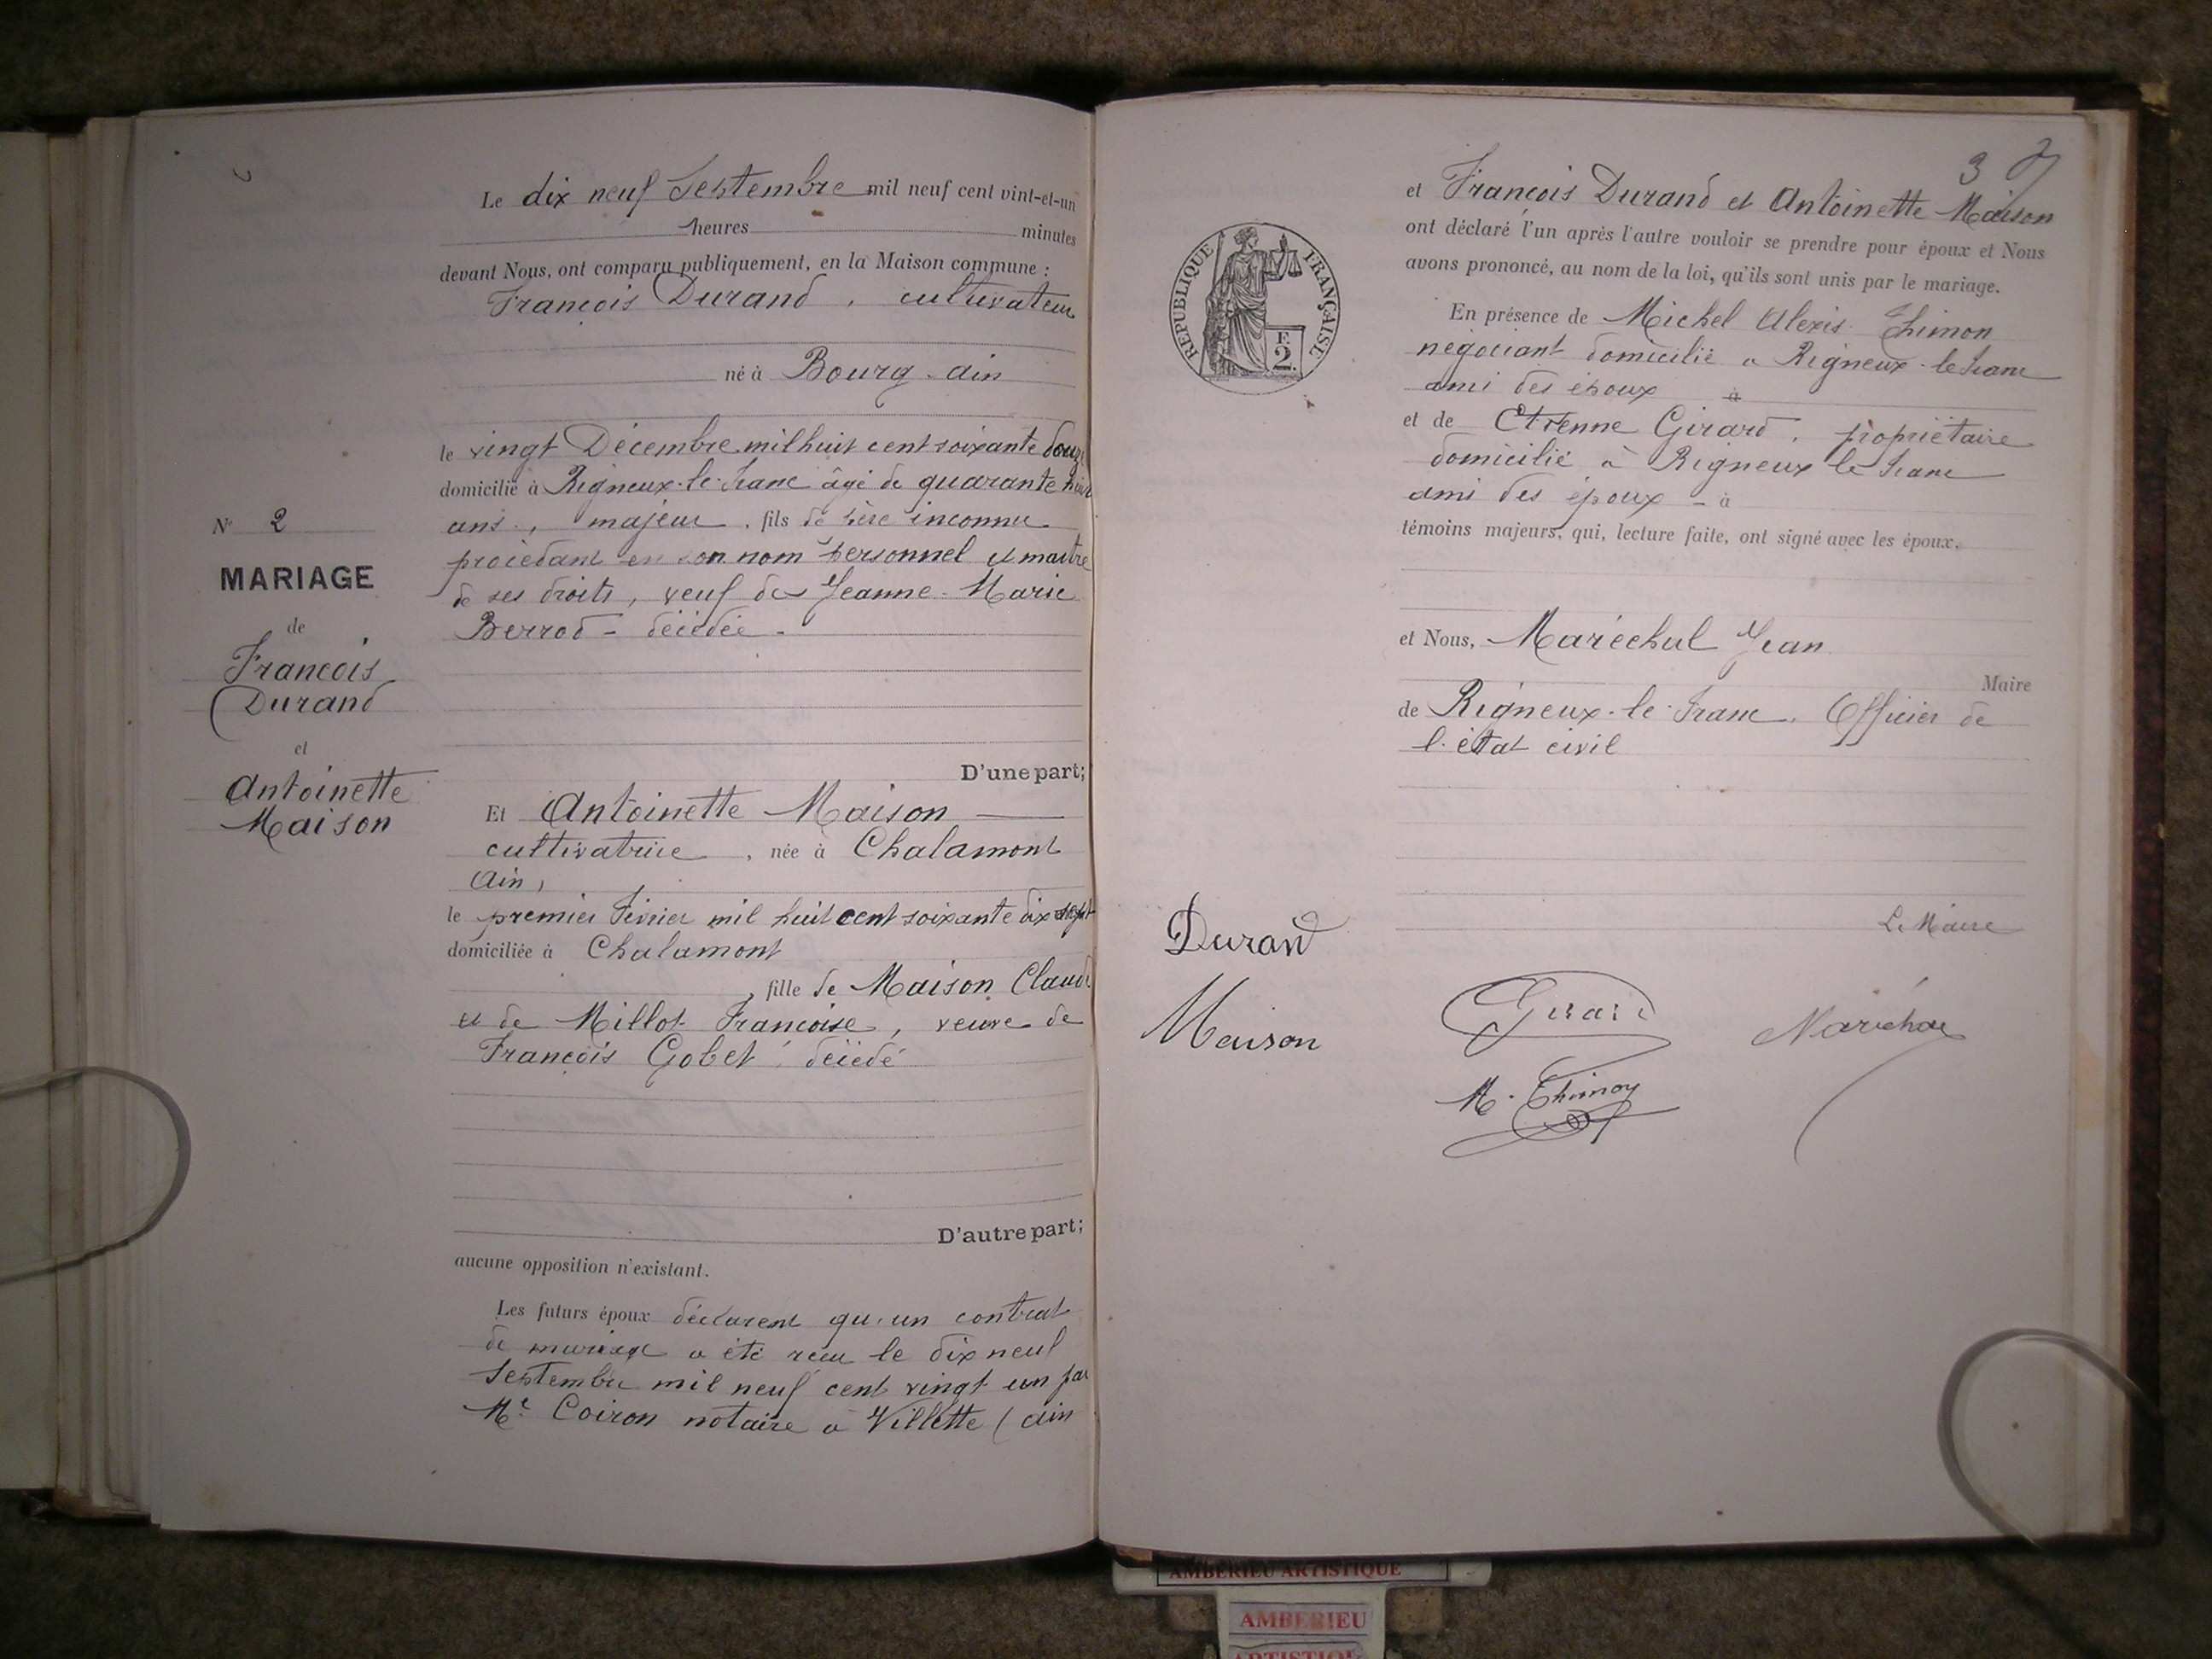 Le dix neuf Septembre mil neuf cent vint-et-un
heures minutes
devant Nous, ont comparu publiquement, en la Maison commune :
François Durand, cultivateur
né à Bourg - ain
le vingt Décembre mil huit cent soixante douze
domicilié à Rigneux-le-Franc âgé de quarante huit
ans, majeur, fils de père inconnu
procédant en son nom personnel et maitre
de ses droits, veuf de Jeanne-Marie
Berrod - décédée -
D'une part;
N° 2
MARIAGE
de
François
Durand
et
Antoinette
Maison
Et Antoinette Maison
cultivatrice, née à Chalamont
Ain,
le premier Février mil huit cent soixante dix sept
domiciliée à Chalamont
, fille de Maison Claude
et de Millot Françoise, veuve de
François Gobet, décédé
D'autre part;
aucune opposition n'existant.
Les futurs époux déclarent qu'un contrat
de mariage a été reçu le dix neuf
Septembre mil neuf cent vingt un par
Me Coiron notaire à Villette (ain
3
RÉPUBLIQUE FRANÇAISE
F.
2.
et François Durand et Antoinette Maison
ont déclaré l'un après l'autre vouloir se prendre pour époux et Nous
avons prononcé, au nom de la loi, qu'ils sont unis par le mariage.
En présence de Michel Alexis Thimon
négociant domicilié a Rigneux-le-Franc
ami des époux à
et de Etienne Girard, propriétaire
domicilié à Rigneux le Franc
ami des époux - à
témoins majeurs, qui, lecture faite, ont signé avec les époux.
et Nous, Maréchal Jean
Maire
de Rigneux-le-Franc. Officier de
l'état civil
Le Maire
Durand
Maison
Girard
Maréchal
M. Thimon
AMBERIEU ARTISTIQUE
AMBERIEU
ARTISTIQUE